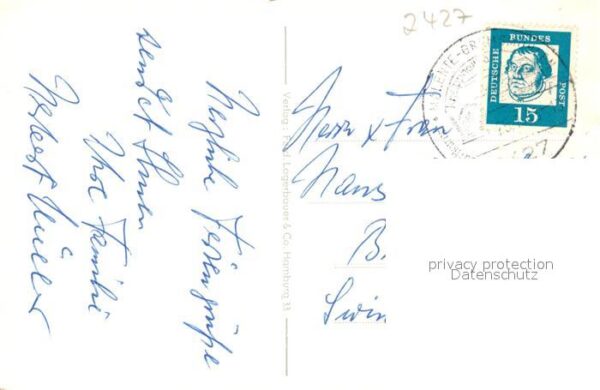 2427
Herzliche Feriengrüße
sendet Ihnen
Ihre Familie
Herbert Müller
Verlag: Ferd. Lagerbauer & Co. Hamburg 13
DEUTSCHE
BUNDES
POST
15
MALENTE-GR
2427
Herrn & Frau
Hans
B.
privacy protection
Datenschutz